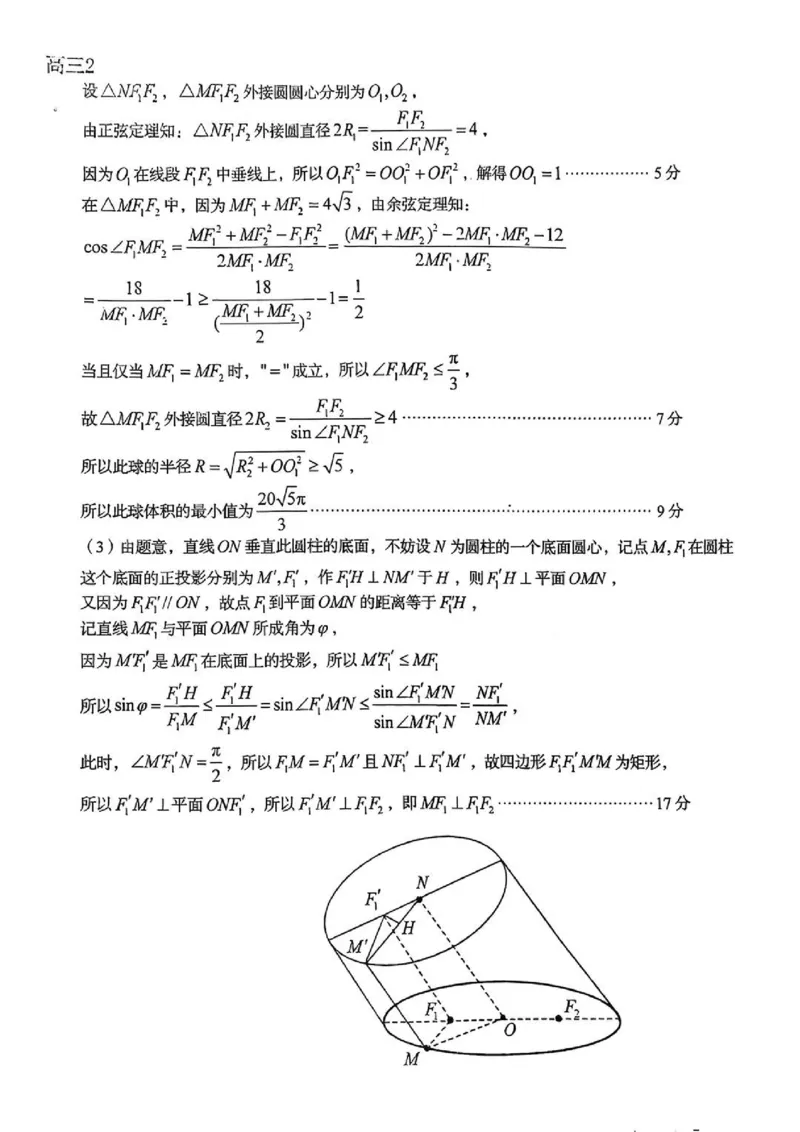 高三2
设△NF₁F₂，△MF₁F₂外接圆圆心分别为O₁,O₂，
由正弦定理知：△NF₁F₂外接圆直径2R₁=F₁F₂/sin∠F₁NF₂=4，
因为O₁在线段F₁F₂中垂线上，所以O₁F₁²=OO₁²+OF₁²，解得OO₁=1················5分
在△MF₁F₂中，因为MF₁+MF₂=4√3，由余弦定理知：
cos∠F₁MF₂=(MF₁²+MF₂²-F₁F₂²)/(2MF₁·MF₂)=((MF₁+MF₂)²-2MF₁·MF₂-12)/(2MF₁·MF₂)
=18/(MF₁·MF₂)-1≥18/((MF₁+MF₂)/2)²-1=1/2
当且仅当MF₁=MF₂时，"="成立，所以∠F₁MF₂≤π/3，
故△MF₁F₂外接圆直径2R₂=F₁F₂/sin∠F₁NF₂≥4················7分
所以此球的半径R=√(R₂²+OO₁²)≥√5，
所以此球体积的最小值为20√5π/3················9分
（3）由题意，直线ON垂直此圆柱的底面，不妨设N为圆柱的一个底面圆心，记点M,F₁在圆柱
这个底面的正投影分别为M′,F₁′，作F₁′H⊥NM′于H，则F₁′H⊥平面OMN，
又因为F₁F₁′//ON，故点F₁到平面OMN的距离等于F₁′H，
记直线MF₁与平面OMN所成角为φ，
因为M′F₁′是MF₁在底面上的投影，所以M′F₁′≤MF₁
所以sinφ=F₁′H/F₁M≤F₁′H/F₁′M′=sin∠F₁′M′N≤sin∠F₁′M′N/sin∠M′F₁′N=NF₁′/NM′，
此时，∠M′F₁′N=π/2，所以F₁M=F₁′M′且NF₁′⊥F₁′M′，故四边形F₁F₁′M′M为矩形，
所以F₁′M′⊥平面ONF₁′，所以F₁′M′⊥F₁F₂，即MF₁⊥F₁F₂················17分
N
F₁′
H
M′
F₁
F₂
O
M